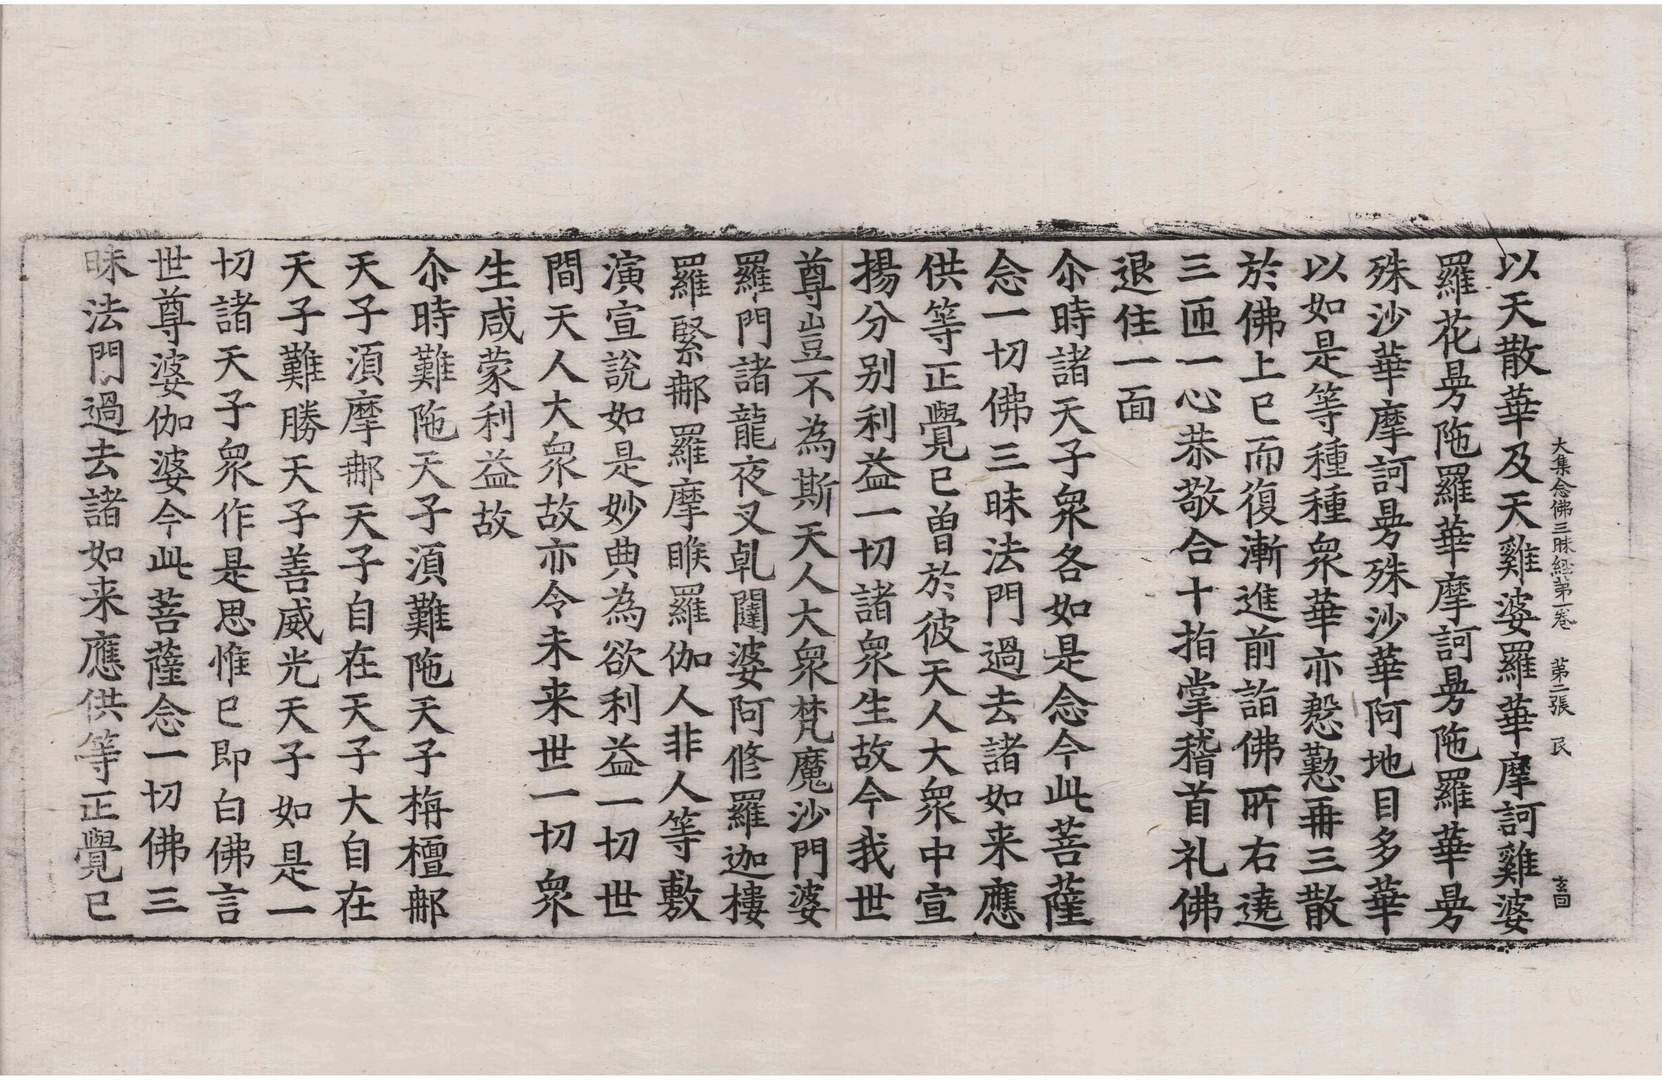 大集念佛三昧経第一卷 第二張 民 玄囬
以天散華及天雞婆羅華摩訶雞婆
羅花曼陁羅華摩訶曼陁羅華曼
殊沙華摩訶曼殊沙華阿地目多華
以如是等種種衆華亦慇懃再三散
於佛上已而復漸進前詣佛所右遶
三匝一心恭敬合十指掌稽首礼佛
退住一面
尒時諸天子衆各如是念今此菩薩
念一切佛三昧法門過去諸如来應
供等正覺已曾於彼天人大衆中宣
揚分别利益一切諸衆生故今我世
尊豈不為斯天人大衆梵魔沙門婆
羅門諸龍夜叉乹闥婆阿修羅迦樓
羅緊那羅摩睺羅伽人非人等敷
演宣說如是妙典為欲利益一切世
間天人大衆故亦令未来世一切衆
生咸蒙利益故
尒時難陁天子須難陁天子栴檀那
天子須摩那天子自在天子大自在
天子難勝天子善威光天子如是一
切諸天子衆作是思惟已即白佛言
世尊婆伽婆今此菩薩念一切佛三
昧法門過去諸如来應供等正覺已